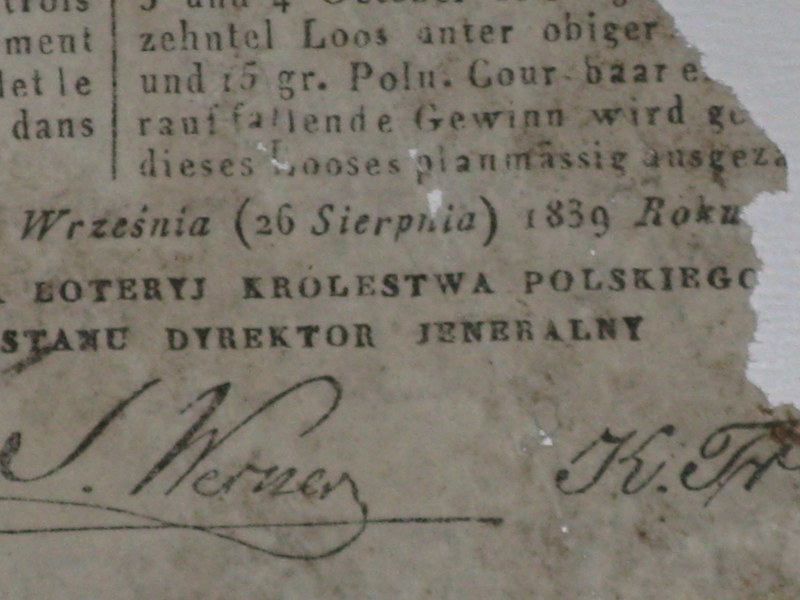 trois
ment
let le
dans
3 und 4 October
zehntel Loos unter obiger
und 15 gr. Poln. Cour baar
rauf fallende Gewinn wird
dieses Looses planmässig ausgeza
Września (26 Sierpnia) 1839 Roku
LOTERYJ KRÓLESTWA POLSKIEGO
STANU DYREKTOR JENERALNY
S. Werner K. Tr